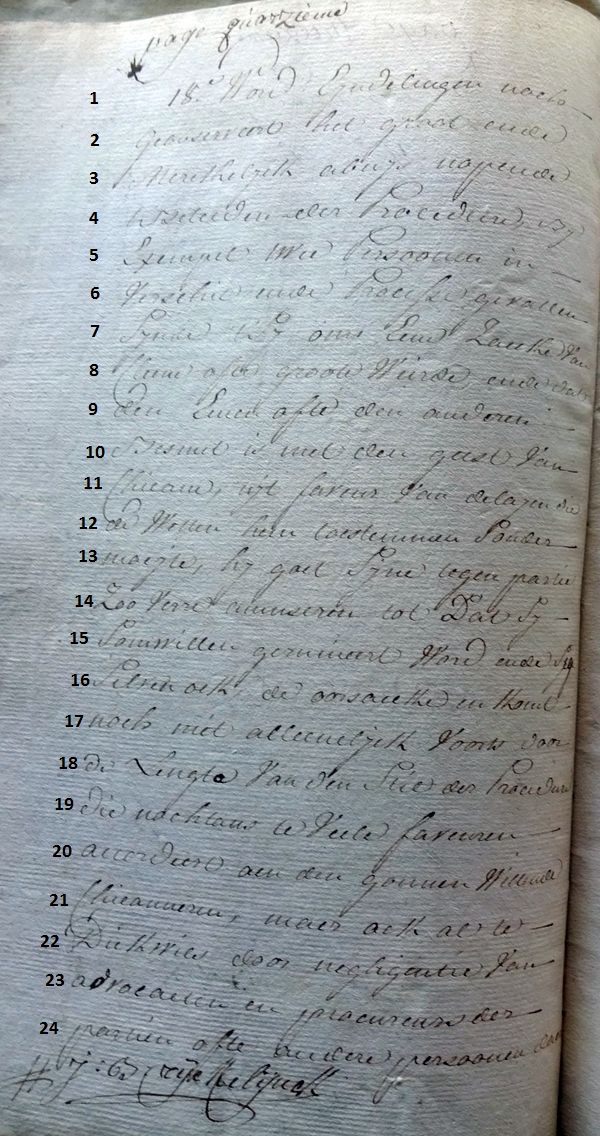 page quatrzieme
1 18.º Word Eyndelingen noch-
2 geobserveert het groot ende
3 merkelyck abuys nopende
4 der Procedure, by
5 Exempel twee Persoonen in
6 Verschil ende Processe gevallen
7 synde by om Eene Zaecke Van
8 Cleene ofte groote Weirde, ende dat
9 den Eenen ofte den anderen
10 besmet is met den geest Van
11 Chicane, uyt faveur Van delayen die
12 de Wetten hem toestemmen sonder
13 moeyte, hy gaet syne tegen partie
14 Zoo Verre amuseren tot Dat sy
15 somwillen geruineert Word ende
16 oock, de orsaecke en komt
17 noch niet alleenelyck Voorts door
18 de Lengte Van den Stiel der Procedure
19 die nochtans te Veele faveuren
20 accordeert aen den gonnen Willende
21 Chicaneren, maer ock al te
22 Dickwils door negligentie Van
23 advocaeten en procureurs der
24 partien ofte andere persoonen